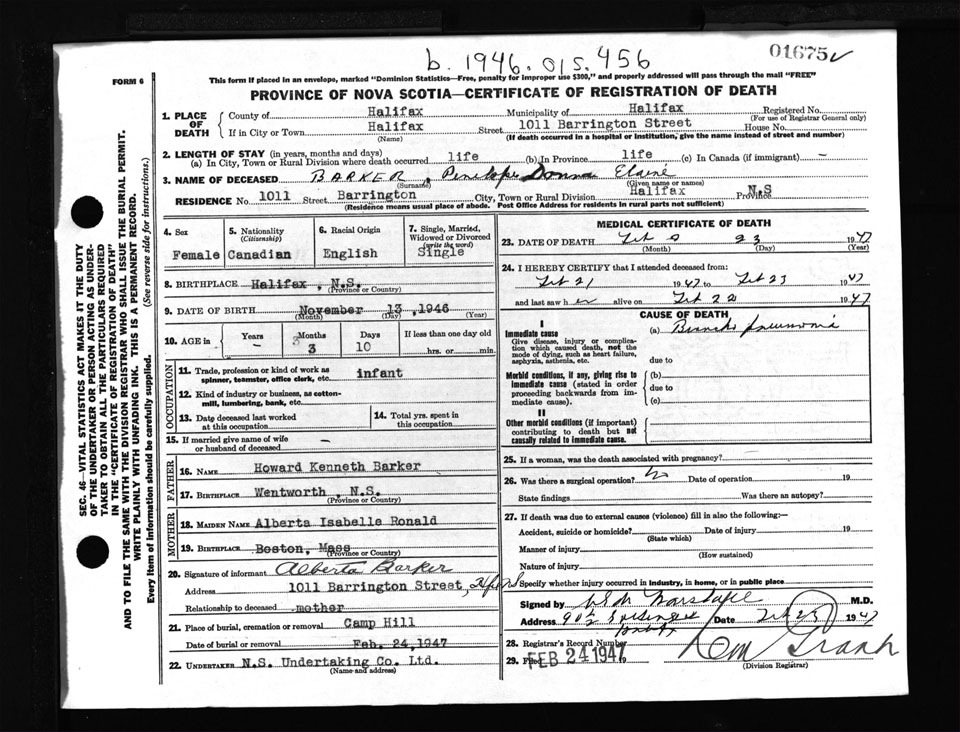 b. 1946. 015. 456
01675
FORM 6
This form if placed in an envelope, marked "Dominion Statistics—Free, penalty for improper use $300," and properly addressed will pass through the mail "FREE"
PROVINCE OF NOVA SCOTIA—CERTIFICATE OF REGISTRATION OF DEATH
SEC. 46—VITAL STATISTICS ACT MAKES IT THE DUTY
OF THE UNDERTAKER OR PERSON ACTING AS UNDER-
TAKER TO OBTAIN ALL THE PARTICULARS REQUIRED
IN THE "CERTIFICATE OF REGISTRATION OF DEATH"
AND TO FILE THE SAME WITH THE DIVISION REGISTRAR WHO SHALL ISSUE THE BURIAL PERMIT.
WRITE PLAINLY WITH UNFADING INK. THIS IS A PERMANENT RECORD.
Every item of Information should be carefully supplied. (See reverse side for instructions.)
1. PLACE OF DEATH
County of Halifax Municipality of Halifax Registered No.
(For use of Registrar General only)
If in City or Town Halifax Street 1011 Barrington Street House No.
(Name) (If death occurred in a hospital or institution, give the name instead of street and number)
2. LENGTH OF STAY (in years, months and days)
(a) In City, Town or Rural Division where death occurred life (b) In Province life (c) In Canada (if immigrant) -
3. NAME OF DECEASED BARKER, Penelope Donna Elaine
(Surname) (Given name or names)
RESIDENCE No. 1011 Street Barrington City, Town or Rural Division Halifax Province N.S
(Residence means usual place of abode. Post Office Address for residents in rural parts not sufficient)
4. Sex
Female
5. Nationality
(Citizenship)
Canadian
6. Racial Origin
English
7. Single, Married,
Widowed or Divorced
(write the word)
Single
8. BIRTHPLACE Halifax, N.S.
(Province or Country)
9. DATE OF BIRTH November 13, 1946
(Month) (Day) (Year)
10. AGE in
Years Months Days If less than one day old
- 3 10 hrs. or min.
OCCUPATION
11. Trade, profession or kind of work as
spinner, teamster, office clerk, etc. infant
12. Kind of industry or business, as cotton-
mill, lumbering, bank, etc.
13. Date deceased last worked
at this occupation
14. Total yrs. spent in
this occupation
15. If married give name of wife
or husband of deceased -
FATHER
16. NAME Howard Kenneth Barker
17. BIRTHPLACE Wentworth, N.S.
(Province or Country)
MOTHER
18. MAIDEN NAME Alberta Isabelle Ronald
19. BIRTHPLACE Boston, Mass
(Province or Country)
20. Signature of informant Alberta Barker
Address 1011 Barrington Street, Hfx N.S
Relationship to deceased mother
21. Place of burial, cremation or removal Camp Hill
Date of burial or removal Feb. 24, 1947
22. UNDERTAKER N.S. Undertaking Co. Ltd.
(Name and address)
MEDICAL CERTIFICATE OF DEATH
23. DATE OF DEATH Feb 23 1947
(Month) (Day) (Year)
24. I HEREBY CERTIFY that I attended deceased from:
Feb 21 1947 to Feb 23 1947
and last saw her alive on Feb 22 1947
CAUSE OF DEATH
I
Immediate cause
Give disease, injury or complica-
tion which caused death, not the
mode of dying, such as heart failure,
asphyxia, asthenia, etc.
(a) Broncho pneumonia
due to
Morbid conditions, if any, giving rise to
immediate cause (stated in order
proceeding backwards from im-
mediate cause).
(b)
due to
(c)
II
Other morbid conditions (if important)
contributing to death but not
causally related to immediate cause.
25. If a woman, was the death associated with pregnancy?
26. Was there a surgical operation? No Date of operation 19
State findings Was there an autopsy?
27. If death was due to external causes (violence) fill in also the following:—
Accident, suicide or homicide? Date of injury 19
(State which)
Manner of injury
(How sustained)
Nature of injury
Specify whether injury occurred in industry, in home, or in public place
Signed by M.D.
Address Date Feb 1947
28. Registrar's Record Number
29. Filed FEB 24 1947 19
(Division Registrar)